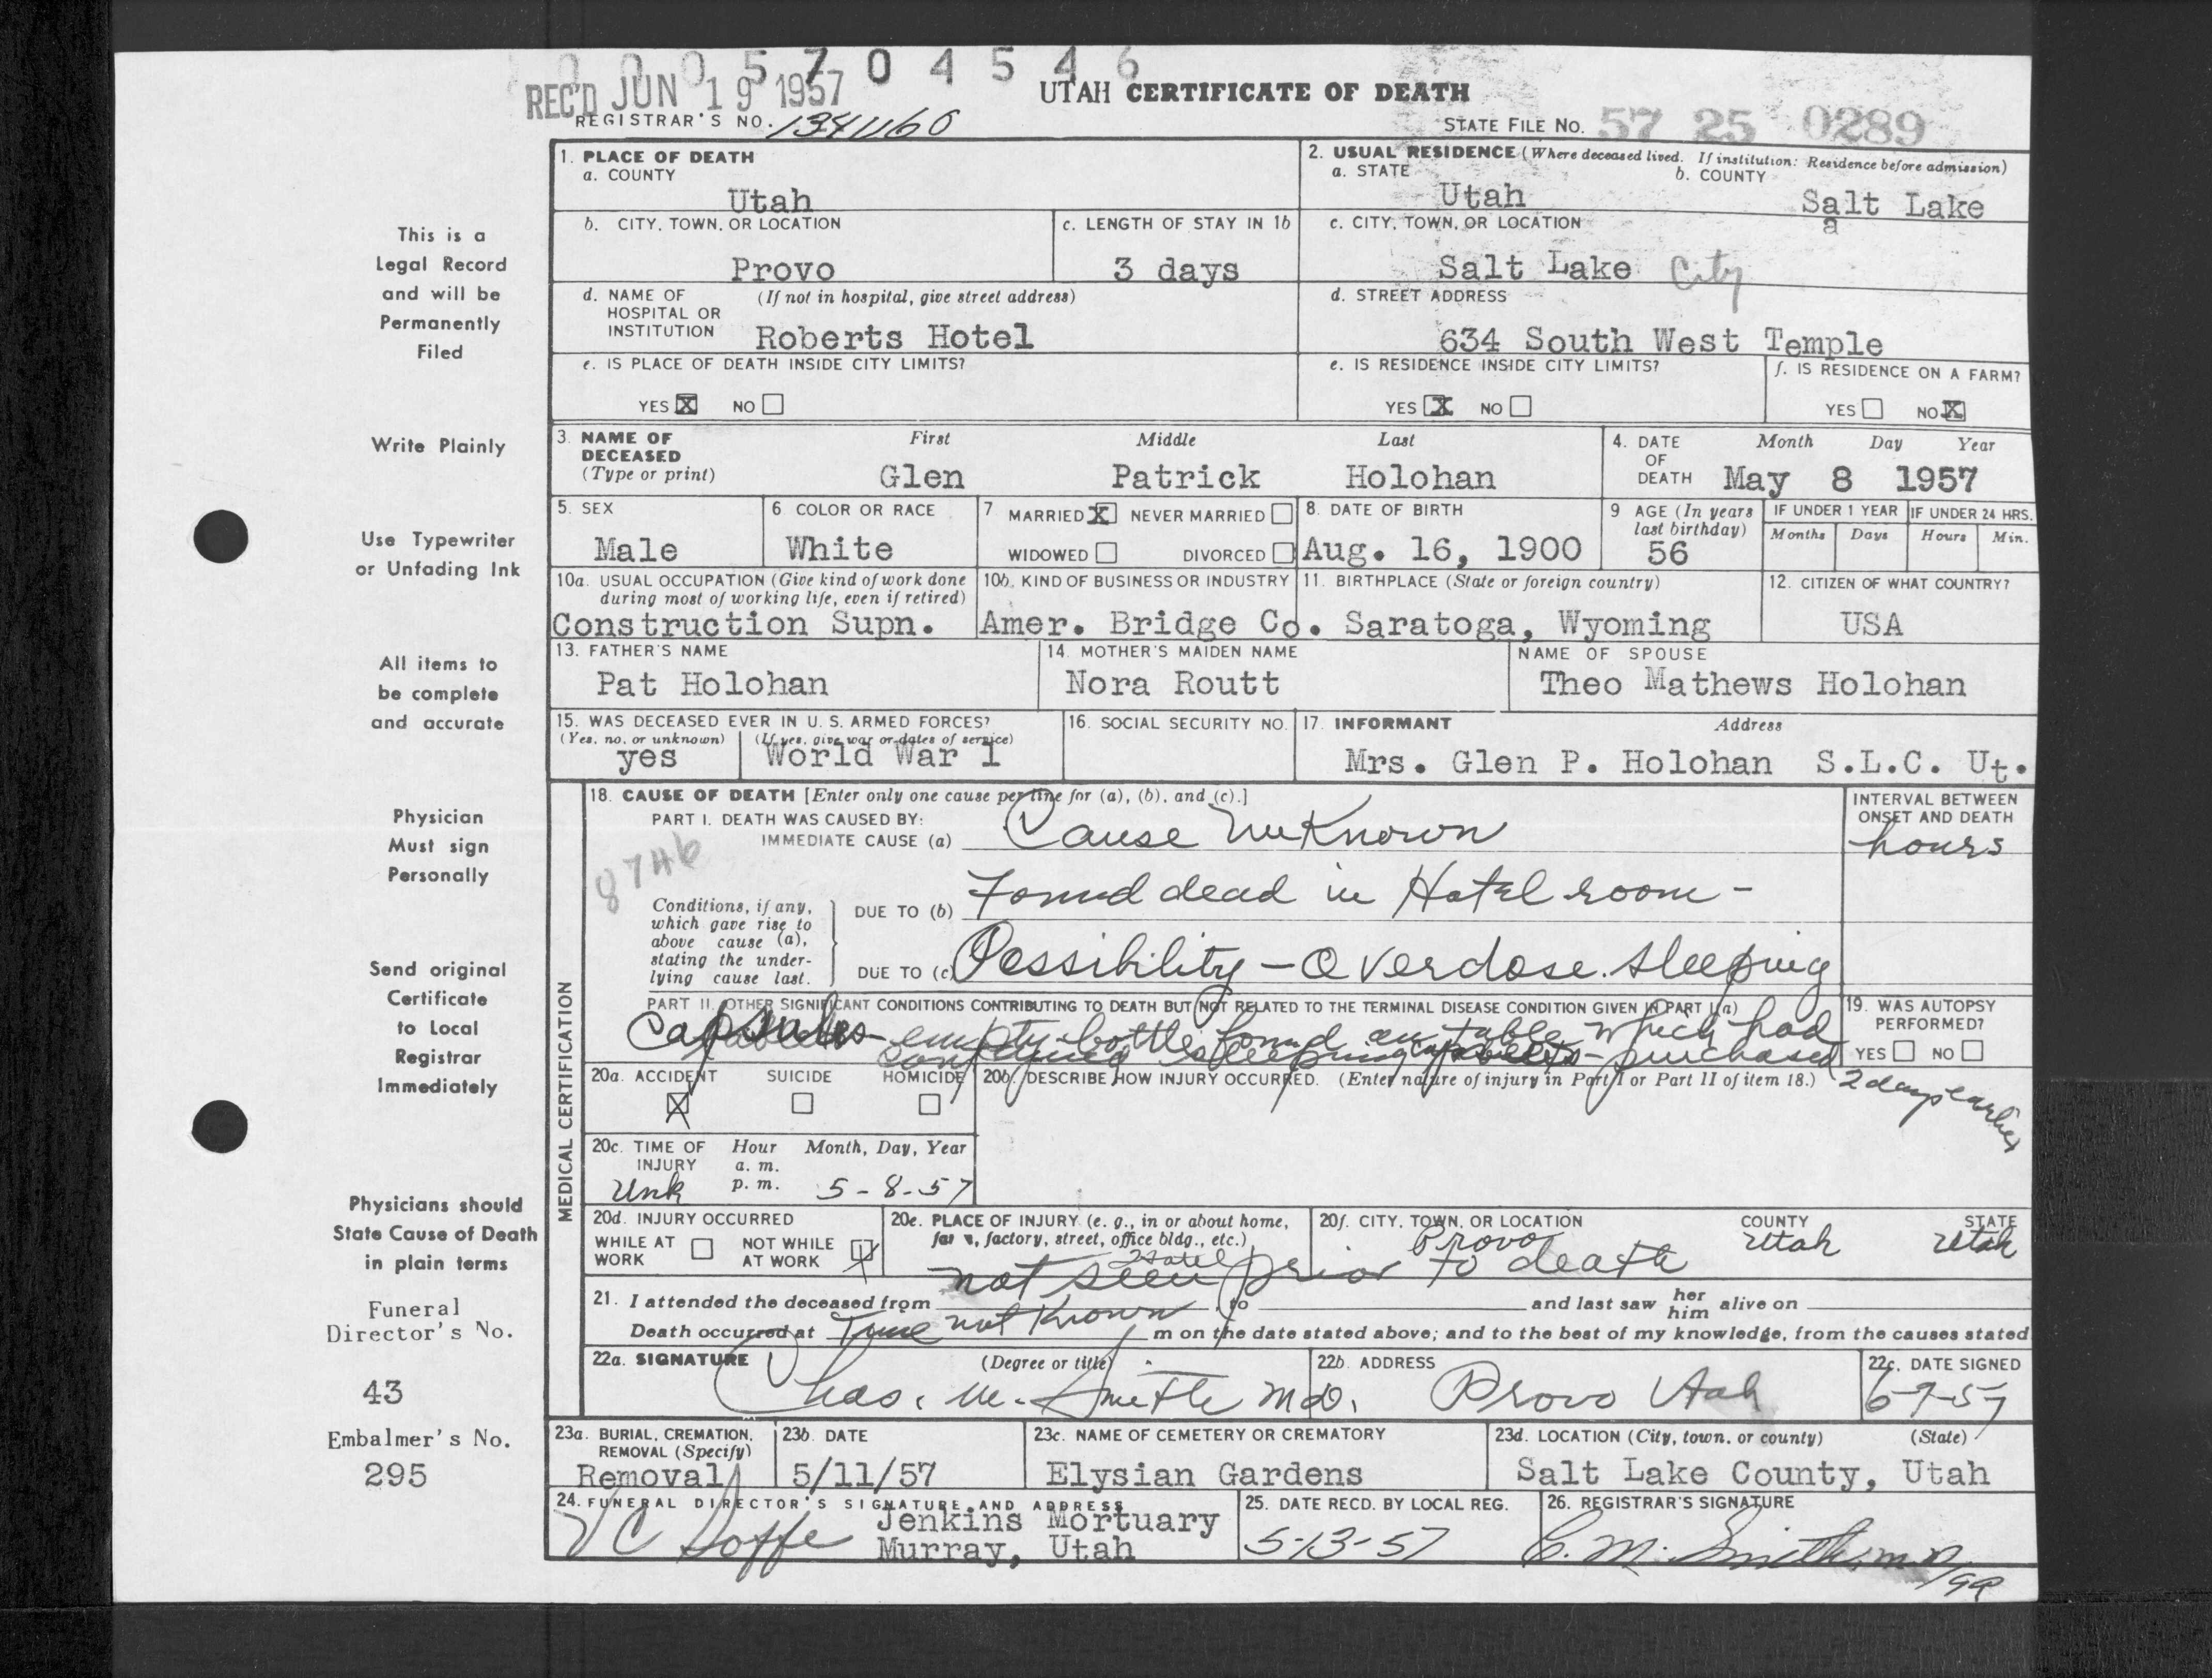 0 0 0 5 7 0 4 5 4 6
REC'D JUN 19 1957
UTAH CERTIFICATE OF DEATH
REGISTRAR'S NO.
STATE FILE NO. 57 25 0289
This is a
Legal Record
and will be
Permanently
Filed
Write Plainly
Use Typewriter
or Unfading Ink
All items to
be complete
and accurate
Physician
Must sign
Personally
Send original
Certificate
to Local
Registrar
Immediately
Physicians should
State Cause of Death
in plain terms
Funeral
Director's No.
43
Embalmer's No.
295
1. PLACE OF DEATH
a. COUNTY
Utah
2. USUAL RESIDENCE (Where deceased lived. If institution: Residence before admission)
a. STATE
Utah
b. COUNTY
Salt Lake
a
b. CITY, TOWN, OR LOCATION
Provo
c. LENGTH OF STAY IN 1b
3 days
c. CITY, TOWN, OR LOCATION
Salt Lake City
d. NAME OF HOSPITAL OR INSTITUTION
(If not in hospital, give street address)
Roberts Hotel
d. STREET ADDRESS
634 South West Temple
e. IS PLACE OF DEATH INSIDE CITY LIMITS?
YES X NO
e. IS RESIDENCE INSIDE CITY LIMITS?
YES X NO
f. IS RESIDENCE ON A FARM?
YES NO X
3. NAME OF DECEASED
(Type or print)
First Middle Last
Glen Patrick Holohan
4. DATE OF DEATH
Month Day Year
May 8 1957
5. SEX
Male
6. COLOR OR RACE
White
7 MARRIED X NEVER MARRIED
WIDOWED DIVORCED
8. DATE OF BIRTH
Aug. 16, 1900
9 AGE (In years last birthday)
56
IF UNDER 1 YEAR
Months Days
IF UNDER 24 HRS.
Hours Min.
10a. USUAL OCCUPATION (Give kind of work done during most of working life, even if retired)
Construction Supn.
10b. KIND OF BUSINESS OR INDUSTRY
Amer. Bridge Co.
11. BIRTHPLACE (State or foreign country)
Saratoga, Wyoming
12. CITIZEN OF WHAT COUNTRY?
USA
13. FATHER'S NAME
Pat Holohan
14. MOTHER'S MAIDEN NAME
Nora Routt
NAME OF SPOUSE
Theo Mathews Holohan
15. WAS DECEASED EVER IN U. S. ARMED FORCES?
(Yes, no, or unknown) (If yes, give war or dates of service)
yes World War 1
16. SOCIAL SECURITY NO.
17. INFORMANT Address
Mrs. Glen P. Holohan S.L.C. Ut.
MEDICAL CERTIFICATION
18. CAUSE OF DEATH [Enter only one cause per line for (a), (b), and (c).]
PART I. DEATH WAS CAUSED BY:
IMMEDIATE CAUSE (a) Cause Unknown
INTERVAL BETWEEN ONSET AND DEATH
hours
Conditions, if any, which gave rise to above cause (a), stating the underlying cause last.
DUE TO (b) Found dead in Hotel room -
DUE TO (c) Possibility - Overdose sleeping
PART II. OTHER SIGNIFICANT CONDITIONS CONTRIBUTING TO DEATH BUT NOT RELATED TO THE TERMINAL DISEASE CONDITION GIVEN IN PART I(a)
Capsules - empty bottle found on table which had
contained sleeping capsules - purchased
2 days earlier
19. WAS AUTOPSY PERFORMED?
YES NO
20a. ACCIDENT SUICIDE HOMICIDE
X
20b. DESCRIBE HOW INJURY OCCURRED. (Enter nature of injury in Part I or Part II of item 18.)
20c. TIME OF INJURY
Hour Month, Day, Year
a. m.
p. m.
Unk 5-8-57
20d. INJURY OCCURRED
WHILE AT WORK NOT WHILE AT WORK X
20e. PLACE OF INJURY (e. g., in or about home, farm, factory, street, office bldg., etc.)
Hotel
20f. CITY, TOWN, OR LOCATION COUNTY STATE
Provo Utah Utah
not seen prior to death
21. I attended the deceased from , to and last saw her him alive on
Death occurred at Time not Known m on the date stated above; and to the best of my knowledge, from the causes stated
22a. SIGNATURE (Degree or title)
Chas. M. Smith M.D.
22b. ADDRESS
Provo Utah
22c. DATE SIGNED
23a. BURIAL, CREMATION, REMOVAL (Specify)
Removal
23b. DATE
5/11/57
23c. NAME OF CEMETERY OR CREMATORY
Elysian Gardens
23d. LOCATION (City, town, or county) (State)
Salt Lake County, Utah
24. FUNERAL DIRECTOR'S SIGNATURE AND ADDRESS
Jenkins Mortuary
Murray, Utah
25. DATE RECD. BY LOCAL REG.
5-13-57
26. REGISTRAR'S SIGNATURE
C. M. Smith, M.D.